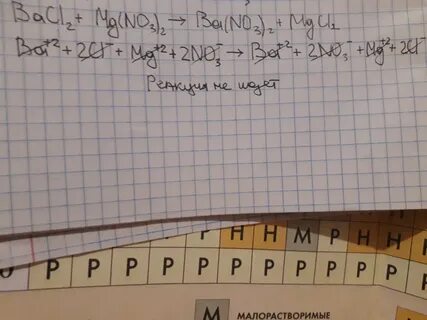 BaCl₂ + Mg(NO₃)₂ → Ba(NO₃)₂ + MgCl₂
Ba⁺² + 2Cl⁻ + Mg⁺² + 2NO₃⁻ → Ba⁺² + 2NO₃⁻ + Mg⁺² + 2Cl⁻
Реакция не идет
Р Н Н М Р Н
Р Р Р Р Р Р Р Р Р Р
М МАЛОРАСТВОРИМЫЕ